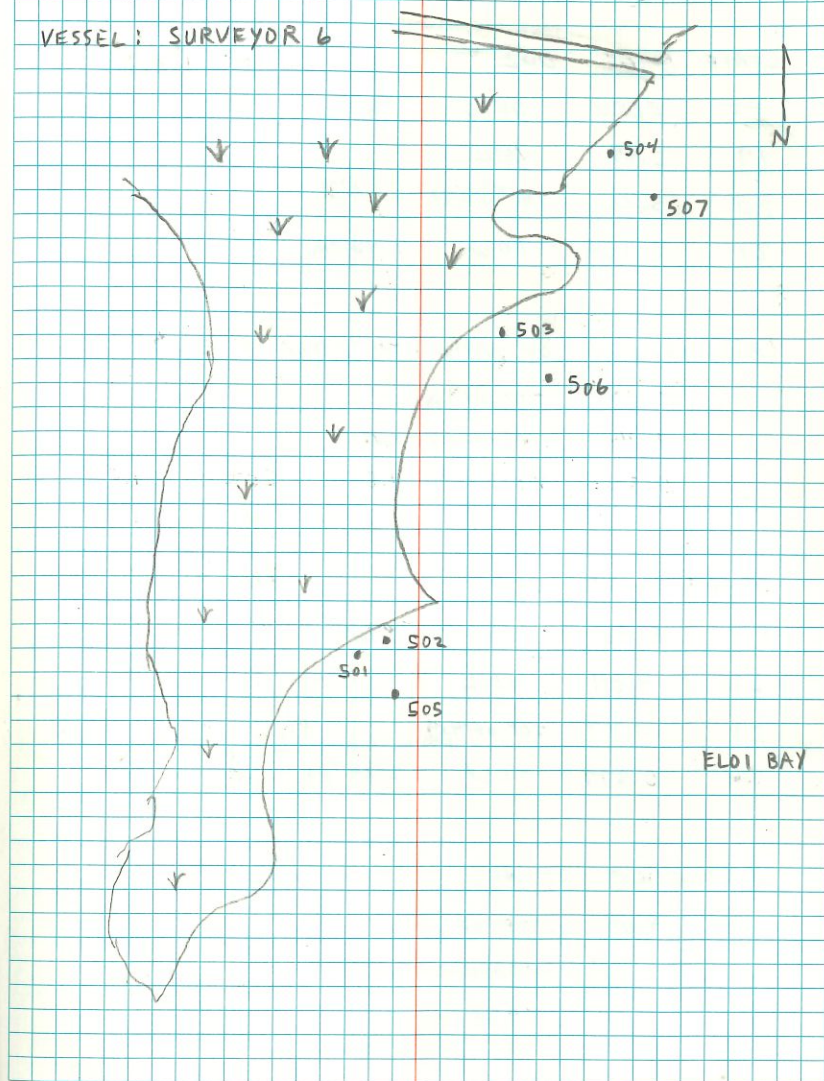 VESSEL: SURVEYOR 6
N
504
507
503
506
502
501
505
ELOI BAY